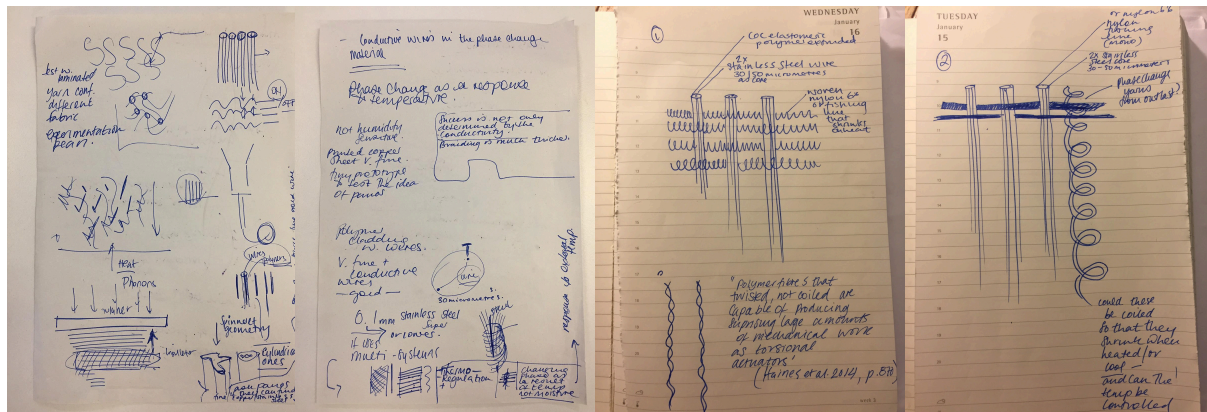 laminated
yarn conf.
different
fabric
experimentation
ON
OFF
Heat
Phonons
wires
polymers
Spinneret
geometry
Cylindrical
ones
- Conductive wires in the phase change
material
Phase change as a response
to temperature.
not humidity
sensitive
printed copper
sheet v. fine.
tiny prototype
to test the idea
of panels
Success is not only
determined by the
conductivity.
Braiding is much tricker.
polymer
cladding
w. wires.
V. fine +
conductive
wires
- good -
wire
30 micrometres.
0.1mm stainless steel
or
it uses
multi-systems
thermo-
regulation
+
changing
phase as
a result
of temp
not moisture
response to external
temp.
WEDNESDAY
January
16
1
COC elastomeric
polymer expanded
2x
Stainless steel wire
30/50 micrometres
as core
woven
nylon 6.6
or fishing
line
that
shrinks
on heat
"Polymer fibres that
twisted, not coiled are
capable of producing
surprising large amounts
of mechanical work
as torsional
actuators'
(Haines et al 2014, p.870)
TUESDAY
January
15
2
or nylon 6.6
nylon
fishing
line
(mono)
2x stainless
steel core
30-50 micrometers
Phase change
yarns
from outlast?
could these
be coiled
so that they
shrink when
heated/or
cool -
and can the
temp be
controlled